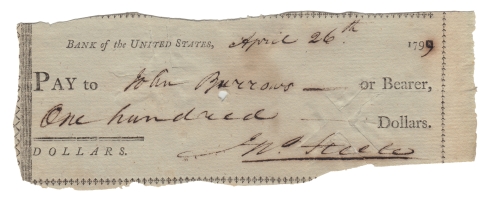 BANK of the UNITED STATES, April 26th 1799
PAY to John Burrows or Bearer,
One hundred Dollars.
DOLLARS. Jno Steele